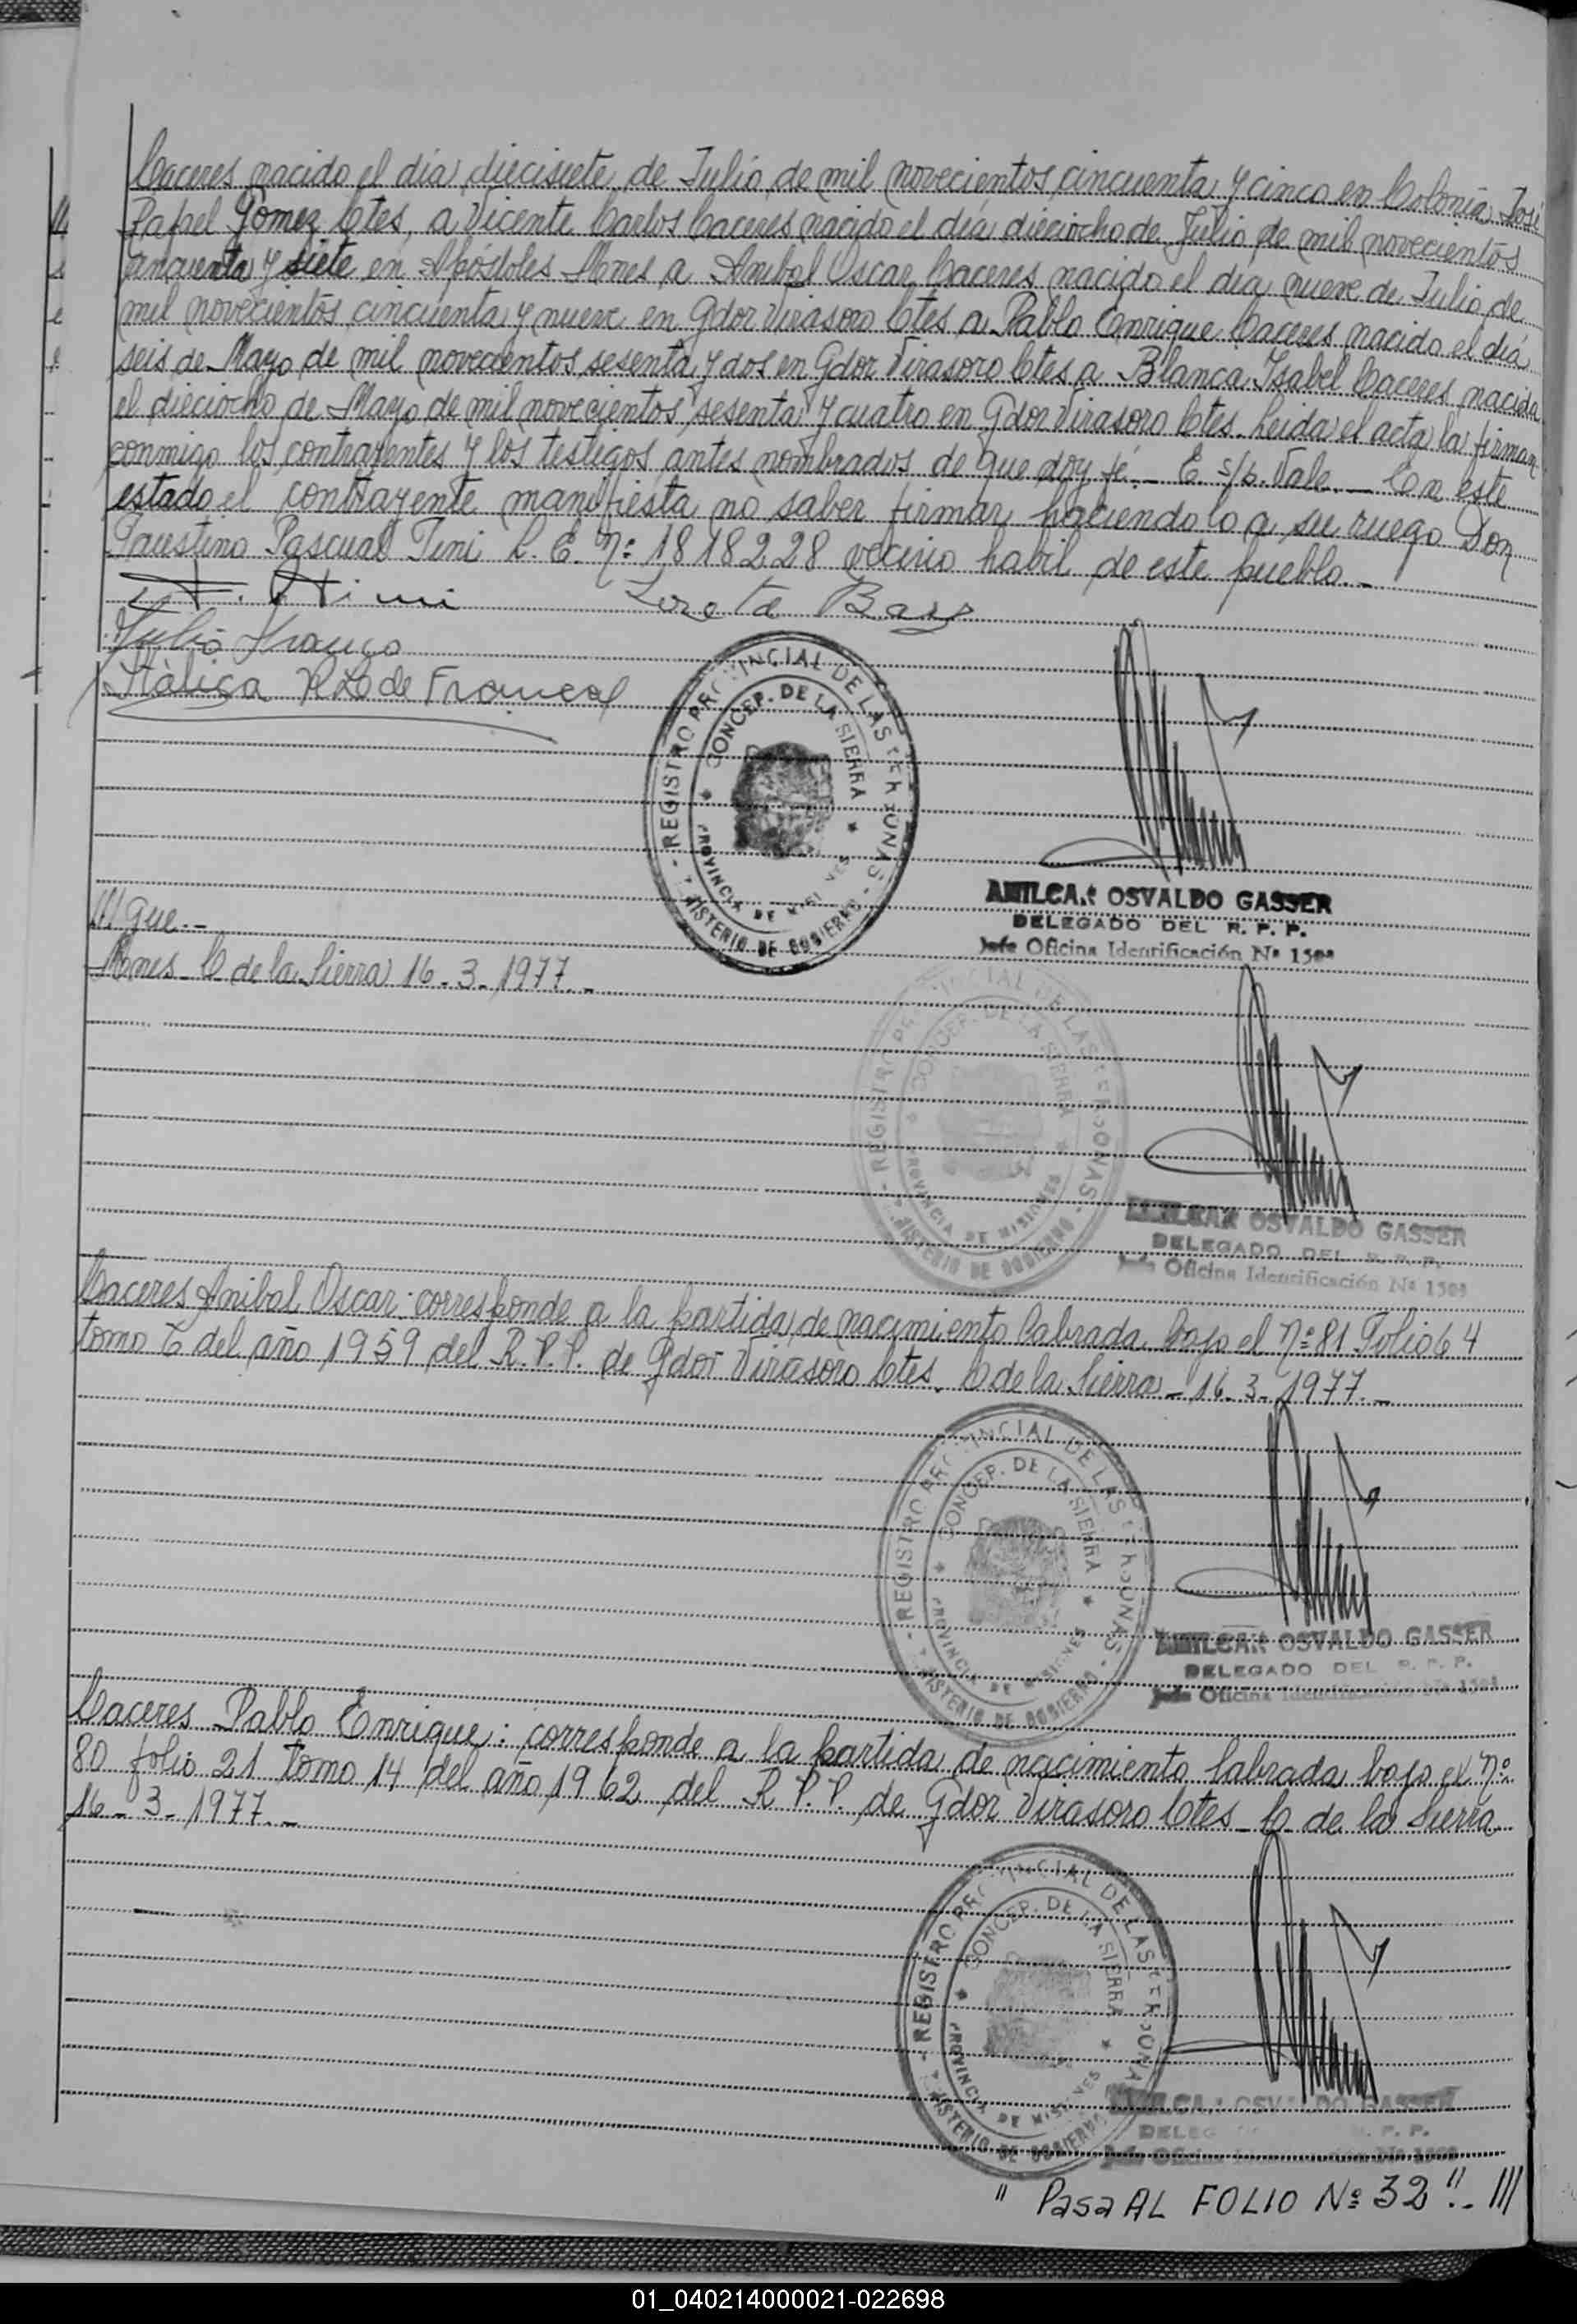 Caceres nacido el día diecisiete de Julio de mil novecientos cincuenta y cinco en Colonia José
Rafael Gomez Ctes, a Vicente Carlos Caceres nacido el día dieciocho de Julio de mil novecientos
cincuenta y siete en Apóstoles Mnes a Anibal Oscar Caceres nacido el día nueve de Julio de
mil novecientos cincuenta y nueve en Gdor Virasoro Ctes a Pablo Enrique Caceres nacido el día
seis de Mayo de mil novecientos sesenta y dos en Gdor Virasoro Ctes a Blanca Isabel Caceres nacida
el dieciocho de Mayo de mil novecientos sesenta y cuatro en Gdor Virasoro Ctes. Leida el acta la firman
conmigo los contrayentes y los testigos antes nombrados de que doy fé.- E s/b. Vale.- En este
estado el contrayente manifiesta no saber firmar haciendolo a su ruego Don
Faustino Pascual Timi L. E. Nº: 1818228 vecino habil de este pueblo.-
F. Timi Loreta Baez
Julio Franco
Itálica R L de Franco
- REGISTRO PROVINCIAL DE LAS PERSONAS -
CONCEP. DE LA SIERRA
PROVINCIA DE MISIONES
MINISTERIO DE GOBIERNO
AMILCAR OSVALDO GASSER
DELEGADO DEL R. P. P.
Jefe Oficina Identificación Nº 1508
/// que.-
Mnes C de la Sierra 16-3-1977.-
- REGISTRO PROVINCIAL DE LAS PERSONAS -
CONCEP. DE LA SIERRA
PROVINCIA DE MISIONES
MINISTERIO DE GOBIERNO
AMILCAR OSVALDO GASSER
DELEGADO DEL R. P. P.
Jefe Oficina Identificación Nº 1508
Caceres Anibal Oscar: corresponde a la partida de nacimiento labrada bajo el Nº 81 Folio 64
tomo 6 del año 1959 del R. P. P. de Gdor Virasoro Ctes. C de la Sierra - 16-3-1977.-
- REGISTRO PROVINCIAL DE LAS PERSONAS -
CONCEP. DE LA SIERRA
PROVINCIA DE MISIONES
MINISTERIO DE GOBIERNO
AMILCAR OSVALDO GASSER
DELEGADO DEL R. P. P.
Jefe Oficina Identificación Nº 1508
Caceres Pablo Enrique: corresponde a la partida de nacimiento labrada bajo el Nº
80 folio 21 tomo 14 del año 1962 del R. P. P. de Gdor Virasoro Ctes - C de la Sierra
16-3-1977.-
- REGISTRO PROVINCIAL DE LAS PERSONAS -
CONCEP. DE LA SIERRA
PROVINCIA DE MISIONES
MINISTERIO DE GOBIERNO
AMILCAR OSVALDO GASSER
DELEGADO DEL R. P. P.
Jefe Oficina Identificación Nº 1508
" Pasa AL FOLIO Nº 32".- ///
01_040214000021-022698